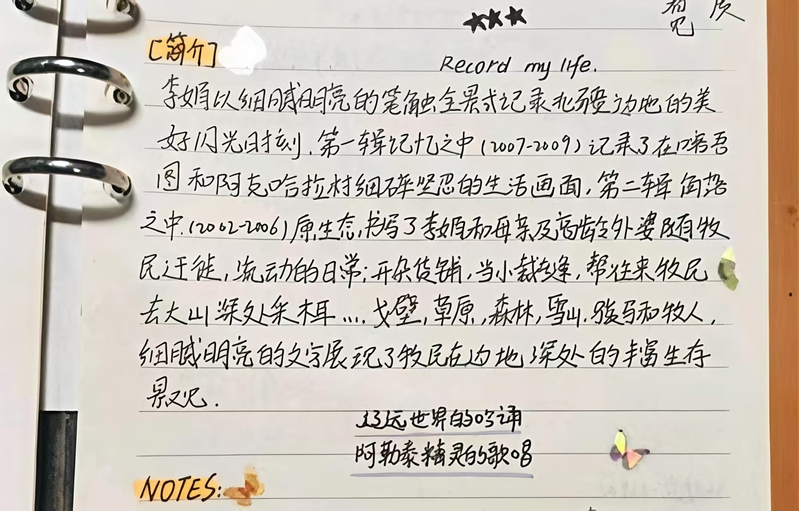 觅 质
[简介]
Record my life.
李娟以细腻明亮的笔触全景式记录北疆边地的美
好闪光时刻.第一辑记忆之中(2007-2009)记录了在喀吾
图和阿克哈拉村细碎坚忍的生活画面,第二辑角落
之中.(2002-2006)原生态,书写了李娟和母亲及高龄外婆跟牧
民迁徙,流动的日常;开杂货铺,当小裁缝,帮往来牧民
去大山深处采木耳...戈壁,草原,森林,雪山.骏马和牧人,
细腻明亮的文字展现了牧民在边地深处的丰富生存
景况.
辽远世界的吟诵
阿勒泰精灵的歌唱
NOTES: